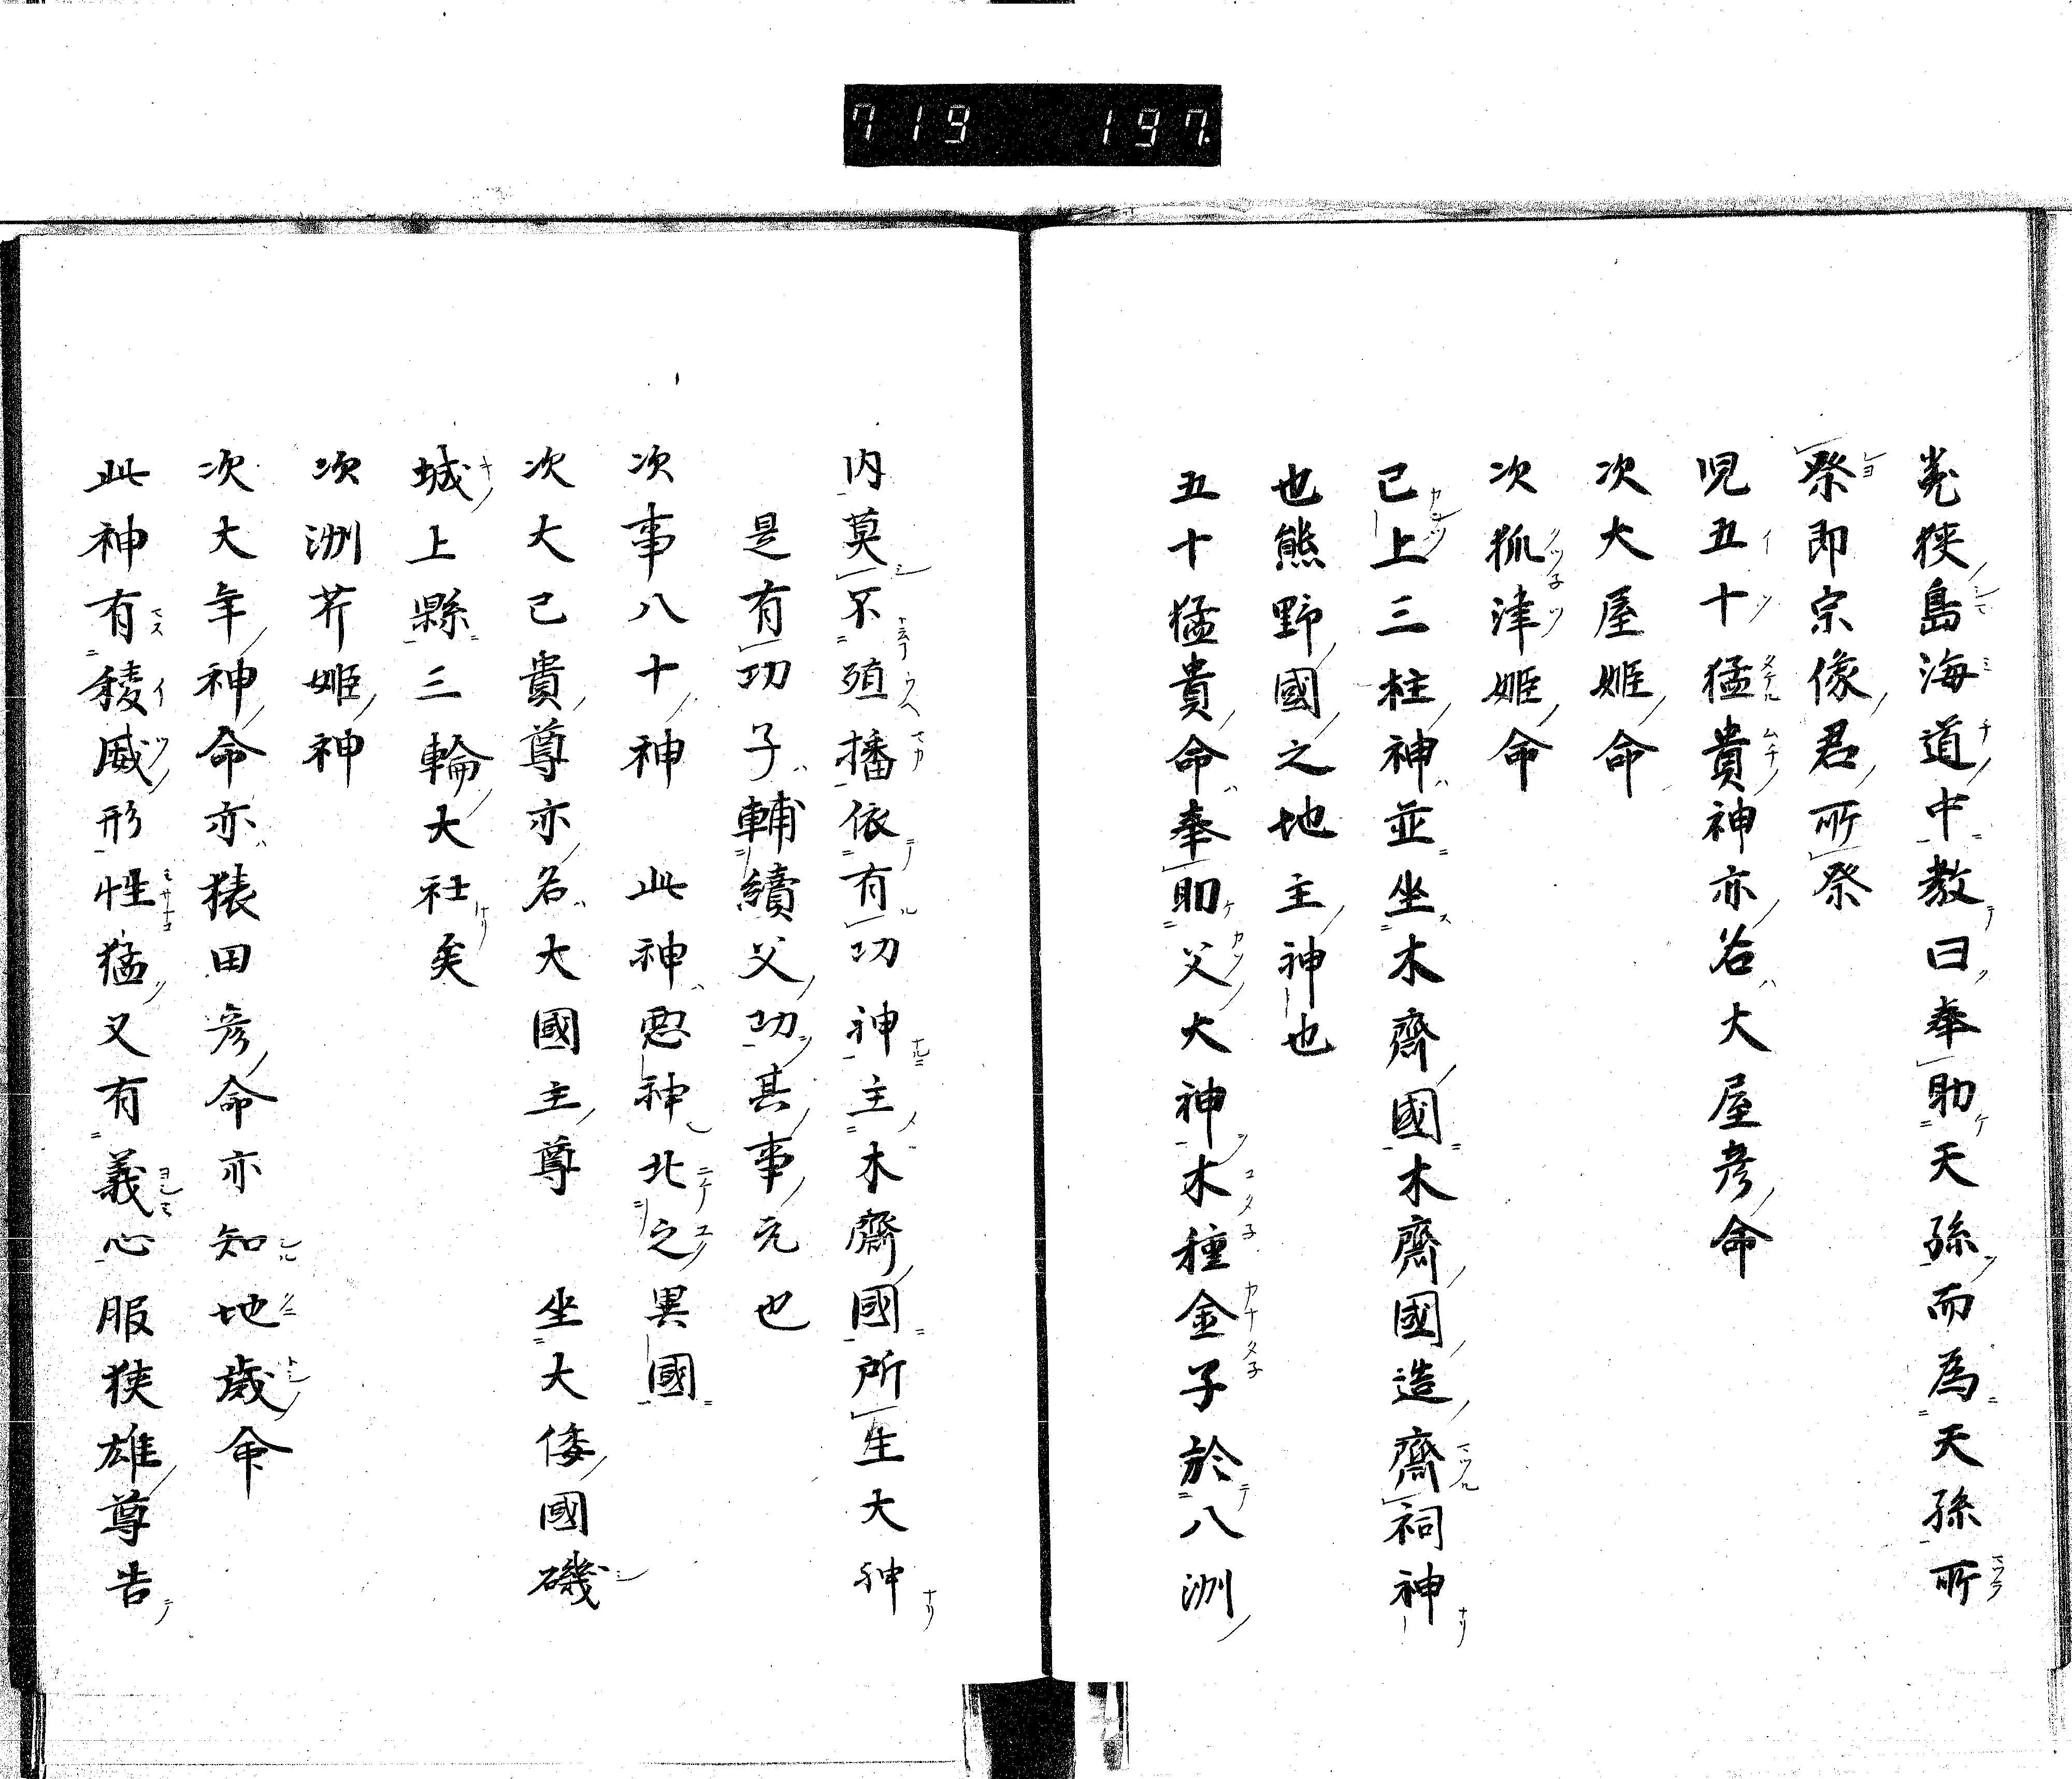 719 197
兎狭島海道中教曰奉助天孫而為天孫所
祭即宗像君所祭
児五十猛貴神亦名大屋彦命
次大屋姫命
次狐津姫命
已上三柱神並坐木齋國木齋國造齋祠神
也熊野國之地主神也
五十猛貴命奉助父大神木種金子於八洲
内莫不殖播依有功神主木齋國所生大神
是有功子輔續父功其事元也
次事八十神 此神惡神北之異國
次大己貴尊亦名大國主尊 坐大倭國磯
城上縣三輪大社矣
次洲芥姫神
次大年神命亦猿田彦命亦知地歳命
此神有稜威形性猛又有義心服狭雄尊告